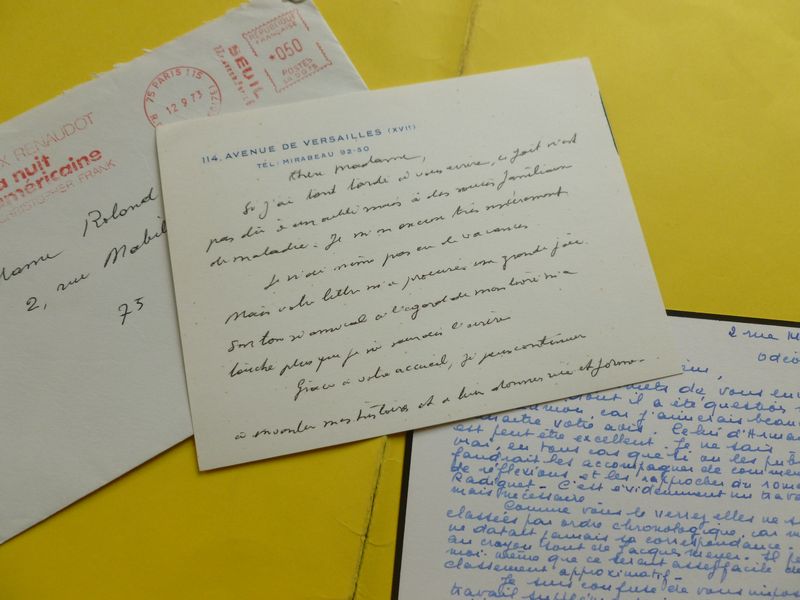 RÉPUBLIQUE
FRANÇAISE
*050
POSTES
SEUIL
75 PARIS 115
12.9.73
X RENAUDOT
a nuit
américaine
CHRISTOPHER FRANK
dame Roland
2, rue Mabil
75
114, AVENUE DE VERSAILLES (XVIe)
TÉL: MIRABEAU 92-50
Chère Madame,
Si j'ai tant tardé à vous écrire, ce fait n'est
pas dû à un oubli mais à des soucis familiaux
de maladie. Je m'en excuse très sincèrement.
Je n'ai même pas eu de vacances.
Mais votre lettre m'a procuré une grande joie.
Son ton si amical à l'égard de mon livre m'a
touché plus que je ne saurais l'écrire.
Grâce à votre accueil, je puis continuer
à inventer mes histoires et à leur donner vie et forme.
2 rue
Odéo
de vous en
dont il a été question
car j'aimerais beau
votre avis. Celui d'Arman
est peut être excellent. Je ne sais
vrai, en tous cas que si on les publ
faudrait les accompagner de comme
de réflexions et les rapprocher du roma
Radiguet. C'est évidemment un trava
mais nécessaire.
Comme vous le verrez elles ne s
classées par ordre chronologique, car
ne datait jamais sa correspondance.
au crayon sont de Jacques
moi-même que ce serait assez facile de
classement approximatif.
Je suis confuse de vous impos
travail supplém